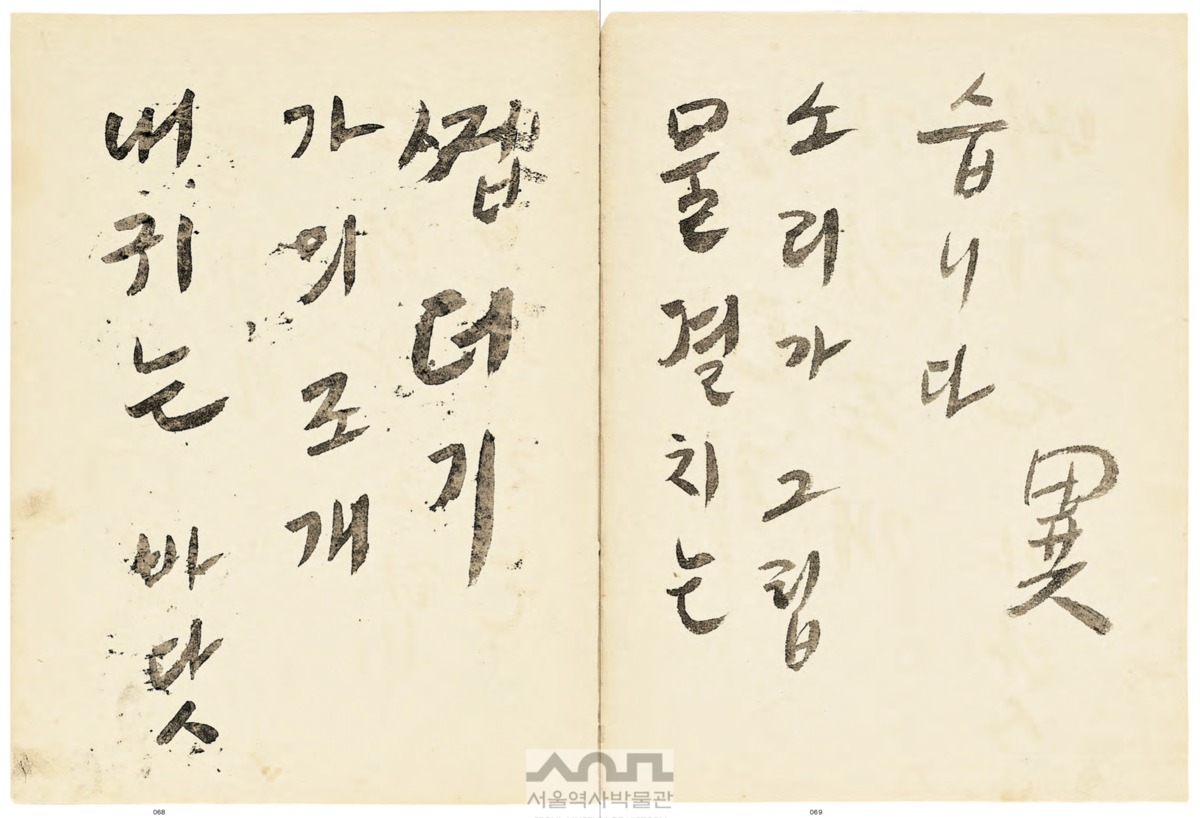 내 귀는 바닷
가의 조개
ᄭᅥᆸ더기
물결치는
소리가 그립
습니다
異
서울역사박물관
068
069